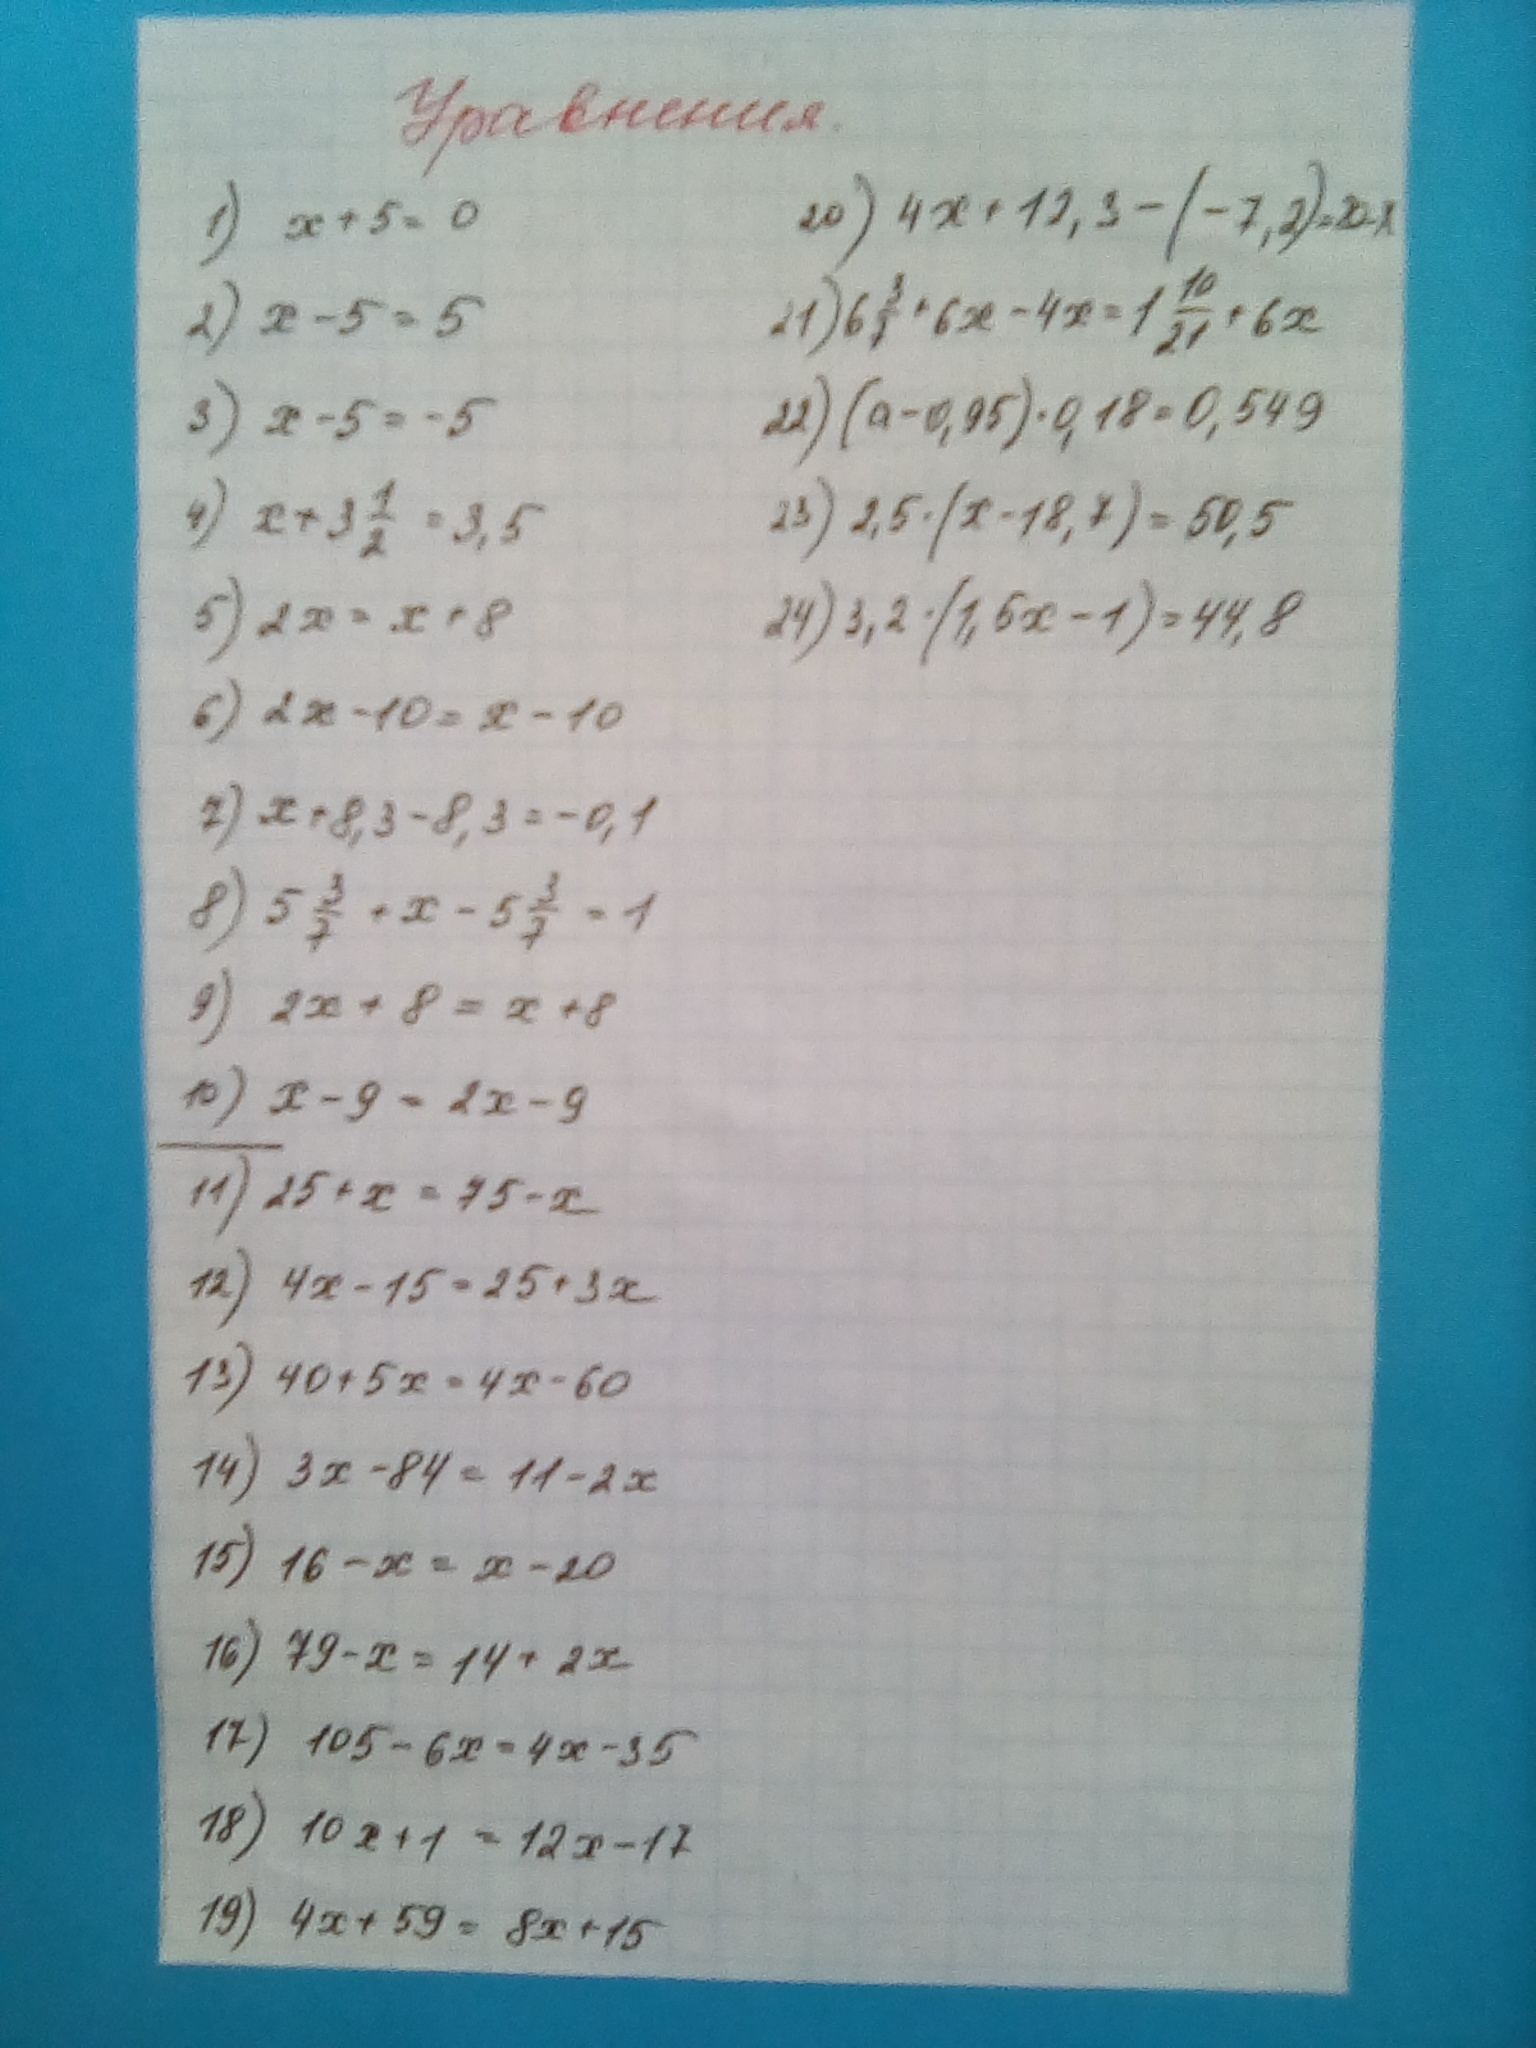 Уравнения.
1) x+5=0
2) x-5=5
3) x-5=-5
4) x+3 1/2 =3,5
5) 2x=x+8
6) 2x-10=x-10
7) x+8,3-8,3=-0,1
8) 5 3/7 +x-5 3/7 =1
9) 2x+8=x+8
10) x-9=2x-9
11) 25+x=75-x
12) 4x-15=25+3x
13) 40+5x=4x-60
14) 3x-84=11-2x
15) 16-x=x-20
16) 79-x=14+2x
17) 105-6x=4x-35
18) 10x+1=12x-17
19) 4x+59=8x+15
20) 4x+12,3-(-7,2)=20-x
21) 6 3/7 +6x-4x=1 10/21 +6x
22) (a-0,95)·0,18=0,549
23) 2,5·(x-18,7)=50,5
24) 3,2·(1,5x-1)=44,8